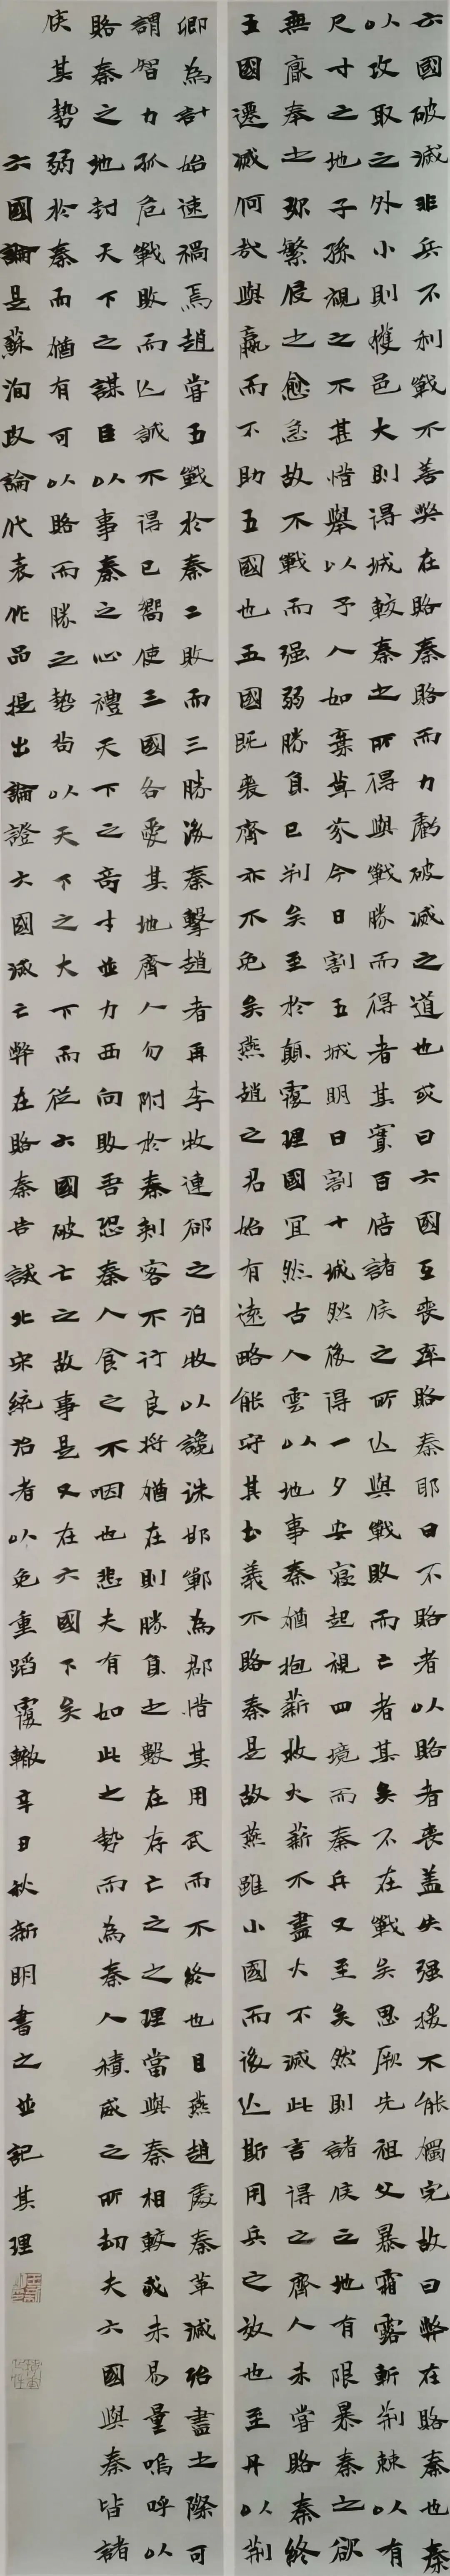 六國破滅非兵不利戰不善弊在賂秦賂而力虧破滅之道也或曰六國互喪率賂秦耶曰不賂者以賂者喪蓋失强援不能獨完故曰弊在賂秦也秦
以攻取之外小則獲邑大則得城較秦之所得與戰勝而得者其實百倍諸侯之所亡與戰敗而亡者其矣不在戰矣思厥先祖父暴霜露斬荆棘以有
尺寸之地子孫視之不甚惜舉以予人如棄草芥今日割五城明日割十城然後得一夕安寢起視四境而秦兵又至矣然則諸侯之地有限暴秦之欲
無厭奉之弥繁侵之愈急故不戰而强弱勝負已判矣至於顛覆理國宜然古人雲以地事秦猶抱薪救火薪不盡火不滅此言得之齊人未嘗賂秦終
五國遷滅何哉與嬴而不助五國也五國既喪齊亦不免矣燕趙之君始有遠略能守其土義不賂秦是故燕雖小國而後亡斯用兵之效也至丹以荆
卿為計始速禍焉趙嘗五戰於秦二敗而三勝後秦擊趙者再李牧連郤之洎牧以讒诛邯鄲為郡惜其用武而不終也且燕趙處秦革滅殆盡之際可
謂智力孤危戰敗而亡誠不得已嚮使三國各愛其地齊人勿附於秦刺客不行良将猶在則勝負之數在存亡之之理當與秦相較或未易量嗚呼以
賂秦之地封天下之謀臣以事秦之心禮天下之奇才並力西向敗吾恐秦人食之不咽也悲夫有如此之勢而為秦人積威之所刼夫六國與秦皆諸
侯其勢弱於秦而猶有可以賂而勝之勢尚以天下之大下而從六國破亡之故事是又在六國下矣
六國論是蘇洵政論代表作品提出論證六國滅亡弊在賂秦告誡北宋統治者以免重蹈覆轍辛丑秋新明書之並記其理